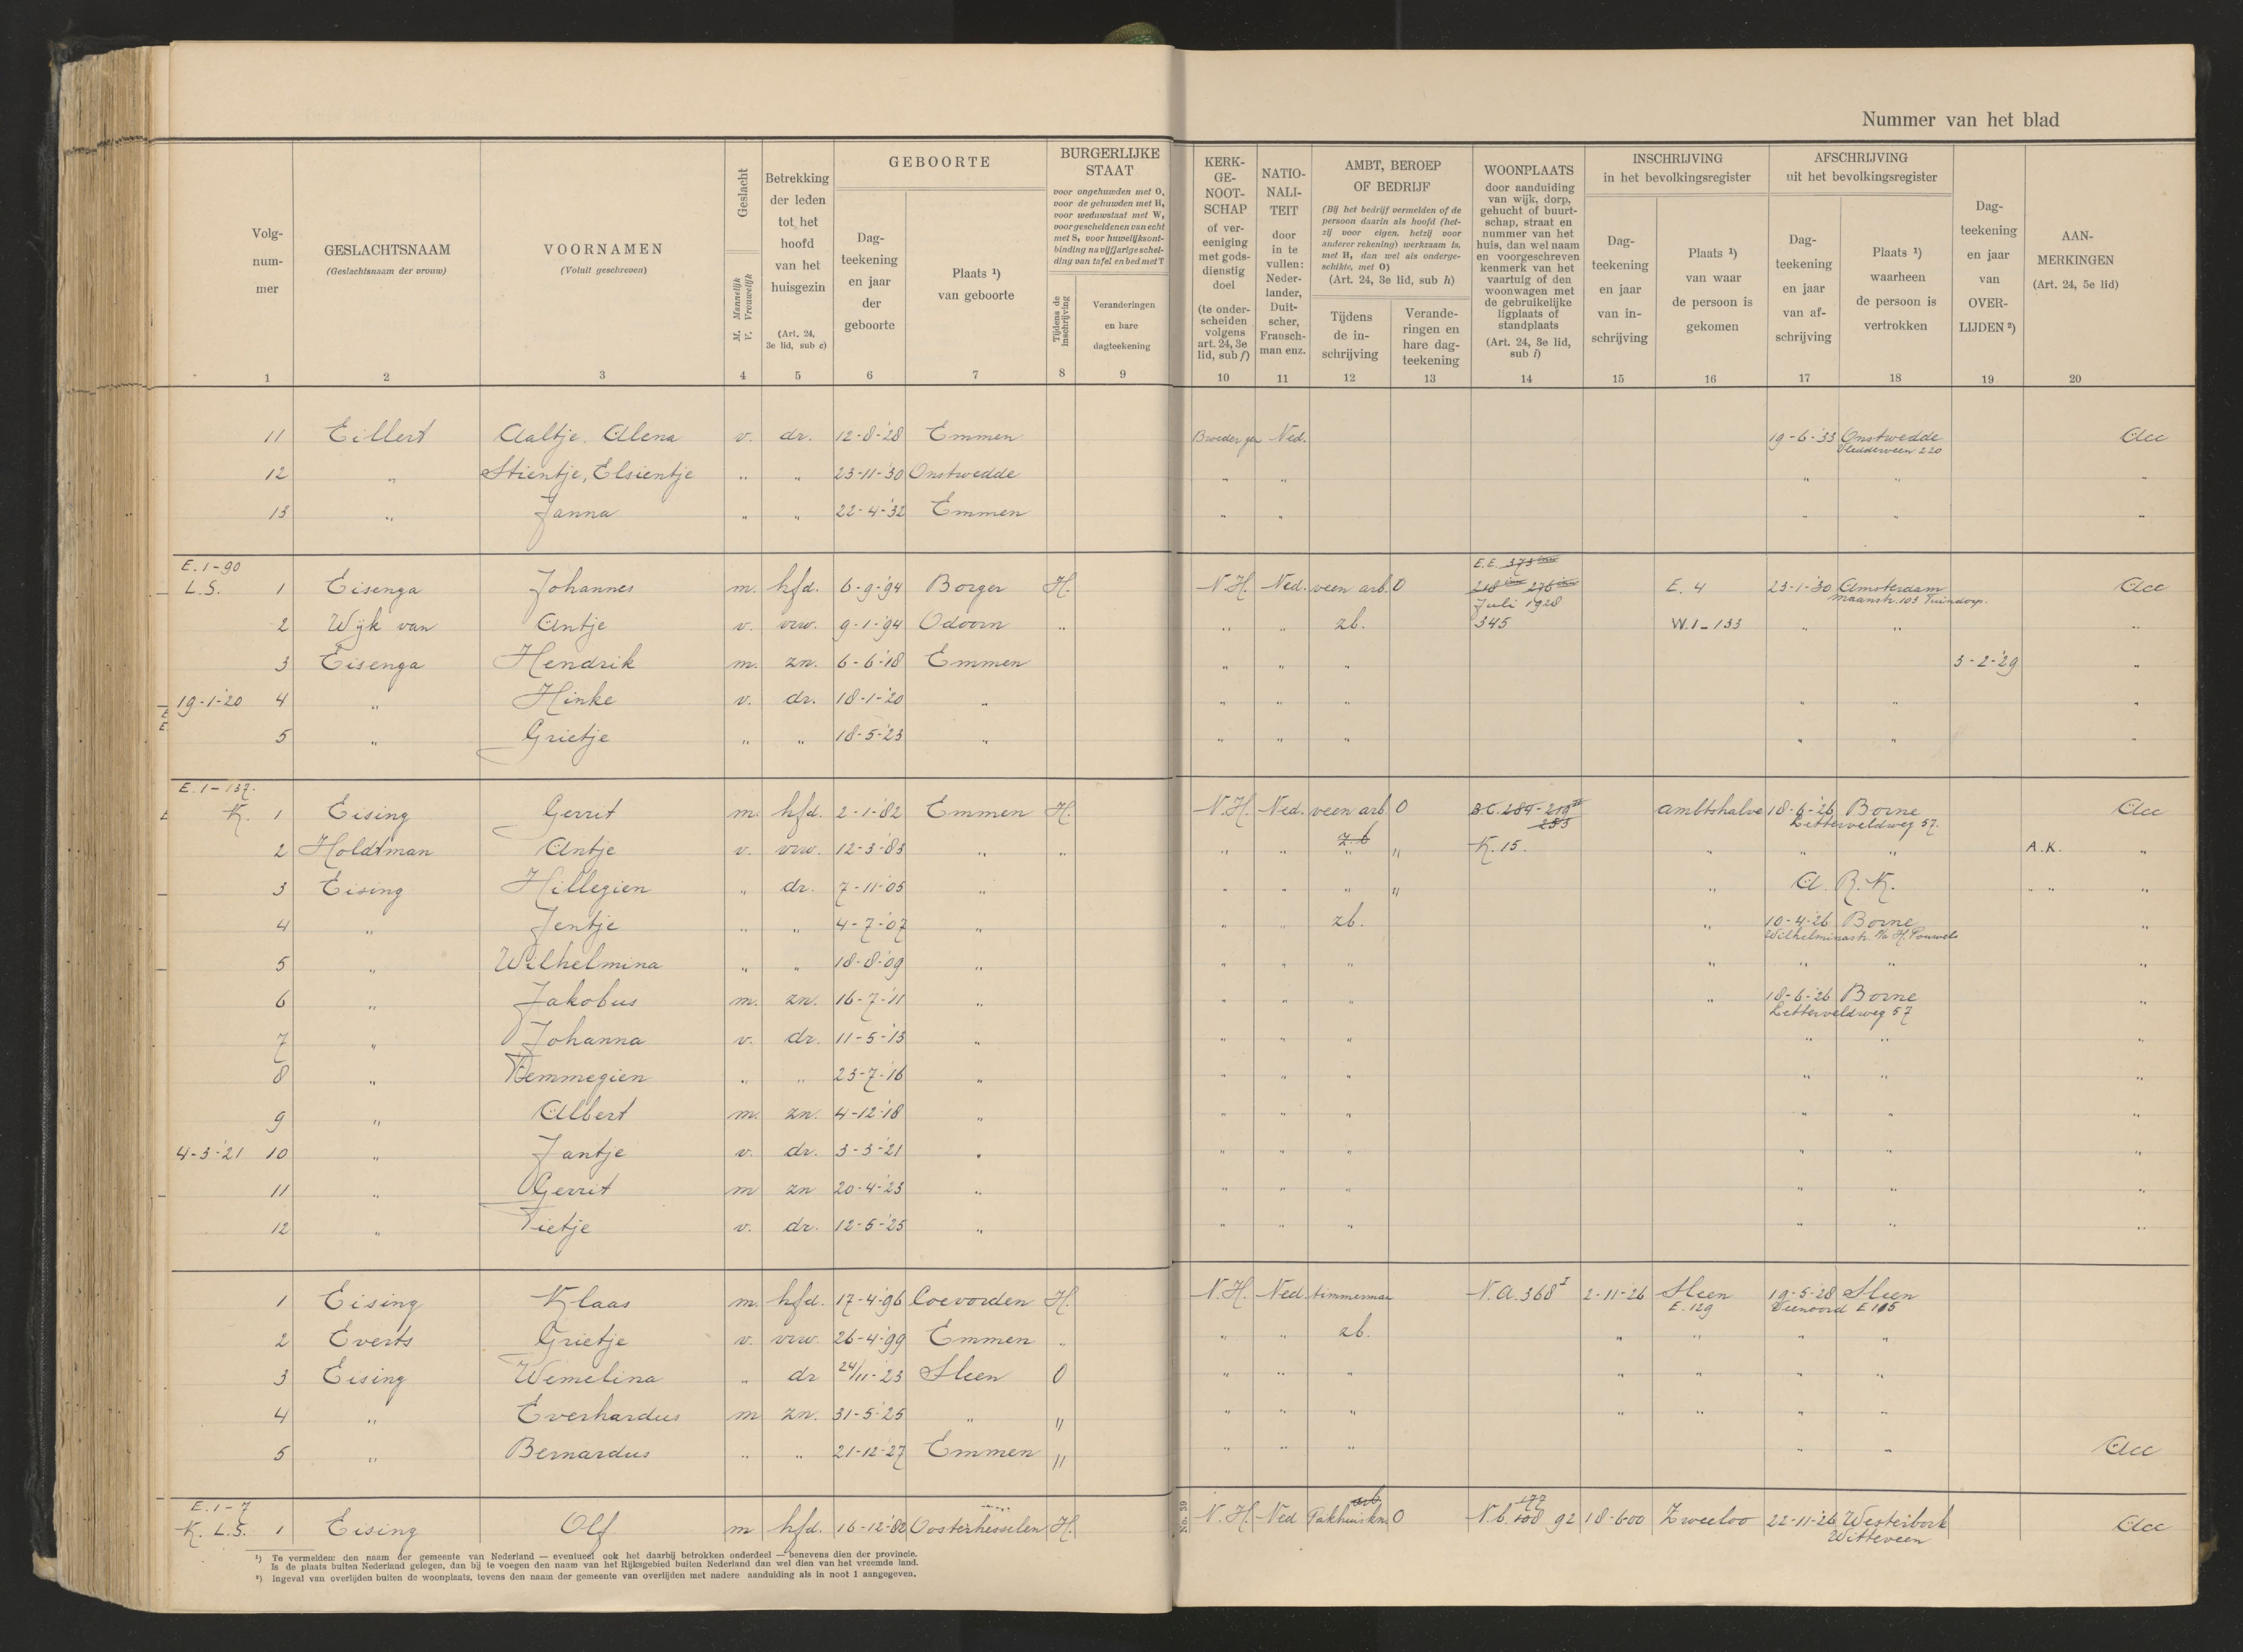 Nummer van het blad
Volg-
num-
mer
1
GESLACHTSNAAM
(Geslachtsnaam der vrouw)
2
VOORNAMEN
(Voluit geschreven)
3
Geslacht
M. Mannelijk
V. Vrouwelijk
4
Betrekking
der leden
tot het
hoofd
van het
huisgezin
(Art. 24,
3e lid, sub c)
5
GEBOORTE
Dag-
teekening
en jaar
der
geboorte
6
Plaats ¹)
van geboorte
7
BURGERLIJKE
STAAT
voor ongehuwden met O,
voor de gehuwden met H,
voor weduwstaat met W,
voor gescheidenen van echt
met S, voor huwelijksont-
binding na vijfjarige schei-
ding van tafel en bed met T
Tijdens de
inschrijving
8
Veranderingen
en hare
dagteekening
9
KERK-
GE-
NOOT-
SCHAP
of ver-
eeniging
met gods-
dienstig
doel
(te onder-
scheiden
volgens
art. 24, 3e
lid, sub f)
10
NATIO-
NALI-
TEIT
door
in te
vullen:
Neder-
lander,
Duit-
scher,
Fransch-
man enz.
11
AMBT, BEROEP
OF BEDRIJF
(Bij het bedrijf vermelden of de
persoon daarin als hoofd (het-
zij voor eigen, hetzij voor
anderer rekening) werkzaam is,
met H, dan wel als onderge-
schikte, met O)
(Art. 24, 3e lid, sub h)
Tijdens
de in-
schrijving
12
Verande-
ringen en
hare dag-
teekening
13
WOONPLAATS
door aanduiding
van wijk, dorp,
gehucht of buurt-
schap, straat en
nummer van het
huis, dan wel naam
en voorgeschreven
kenmerk van het
vaartuig of den
woonwagen met
de gebruikelijke
ligplaats of
standplaats
(Art. 24, 3e lid,
sub i)
14
INSCHRIJVING
in het bevolkingsregister
Dag-
teekening
en jaar
van in-
schrijving
15
Plaats ¹)
van waar
de persoon is
gekomen
16
AFSCHRIJVING
uit het bevolkingsregister
Dag-
teekening
en jaar
van af-
schrijving
17
Plaats ¹)
waarheen
de persoon is
vertrokken
18
Dag-
teekening
en jaar
van
OVER-
LIJDEN ²)
19
AAN-
MERKINGEN
(Art. 24, 5e lid)
20
11 Eillert Aaltje, Alena v. dr. 12-8-'28 Emmen Ned. 19-6-'33 Onstwedde Acc
Vledderveen 220
12 " Stientje, Elsientje " " 23-11-'30 Onstwedde " " " " "
13 " Janna " " 22-4-'32 Emmen " " " " "
E.1-90 E.E. 373
L.S. 1 Eisenga Johannes m. hfd. 6-9-'94 Borger H. N.H. Ned. veen arb. O 218 276 E. 4 23-1-'30 Amsterdam Acc
Juli 1928 Maanstr. 103 Tuindorp.
2 Wijk van Antje v. vrw. 9-1-'94 Odoorn " " " zb. 345 W.1-133 " " "
3 Eisenga Hendrik m. zn. 6-6-'18 Emmen " " " 3-2-'29 "
19-1-'20 4 " Hinke v. dr. 18-1-'20 " " " " " " "
5 " Grietje " " 18-5-'23 " " " " " " "
E.1-137.
K. 1 Eising Gerrit m. hfd. 2-1-'82 Emmen H. N.H. Ned. veen arb O B.C. 284-219 ambtshalve 18-6-'26 Borne Acc
253 Letterveldweg 57.
2 Holdtman Antje v. vrw. 12-3-'83 " " " " z.b " K. 15. " " " A.K. "
3 Eising Hillegien " dr. 7-11-'05 " " " " " " A.R.K. " " "
4 " Jentje " " 4-7-'07 " " " zb. " 10-4-'26 Borne "
Wilhelminastr. H. Pouwels
5 " Wilhelmina " " 18-8-'09 " " " " " " " "
6 " Jakobus m. zn. 16-7-'11 " " " " " 18-6-'26 Borne "
Letterveldweg 57
7 " Johanna v. dr. 11-5-'13 " " " " " " "
8 " Hemmegien " " 23-7-'16 " " " " " " "
9 " Albert m. zn. 4-12-'18 " " " " " " "
4-3-'21 10 " Jantje v. dr. 3-3-'21 " " " " " " "
11 " Gerrit m zn 20-4-'23 " " " " " " "
12 " Tietje v. dr. 12-5-'25 " " " " " " "
1 Eising Klaas m. hfd. 17-4-'96 Coevorden H. N.H. Ned. timmerman N.A. 368 I 2-11-'26 Sleen 19-5-'28 Sleen
E. 129 Veenoord E 115
2 Everts Grietje v. vrw. 26-4-'99 Emmen " " " zb. " " " "
3 Eising Wemelina " dr 24/11-'23 Sleen O " " " " " " "
4 " Everhardus m zn. 31-5-'25 " " " " " " " " "
5 " Bernardus " " 21-12-'27 Emmen " " " " " " Acc
E.1-7 arb 177
K. L.S. 1 Eising Olf m hfd. 16-12-'82 Oosterhesselen H. N.H. Ned Pakhuiskn. O N.b. 108 92 18-6-00 Zweeloo 22-11-'26 Westerbork Acc
Witteveen
No. 39
¹) Te vermelden: den naam der gemeente van Nederland — eventueel ook het daarbij betrokken onderdeel — benevens dien der provincie.
Is de plaats buiten Nederland gelegen, dan bij te voegen den naam van het Rijksgebied buiten Nederland dan wel dien van het vreemde land.
²) Ingeval van overlijden buiten de woonplaats, tevens den naam der gemeente van overlijden met nadere aanduiding als in noot 1 aangegeven.